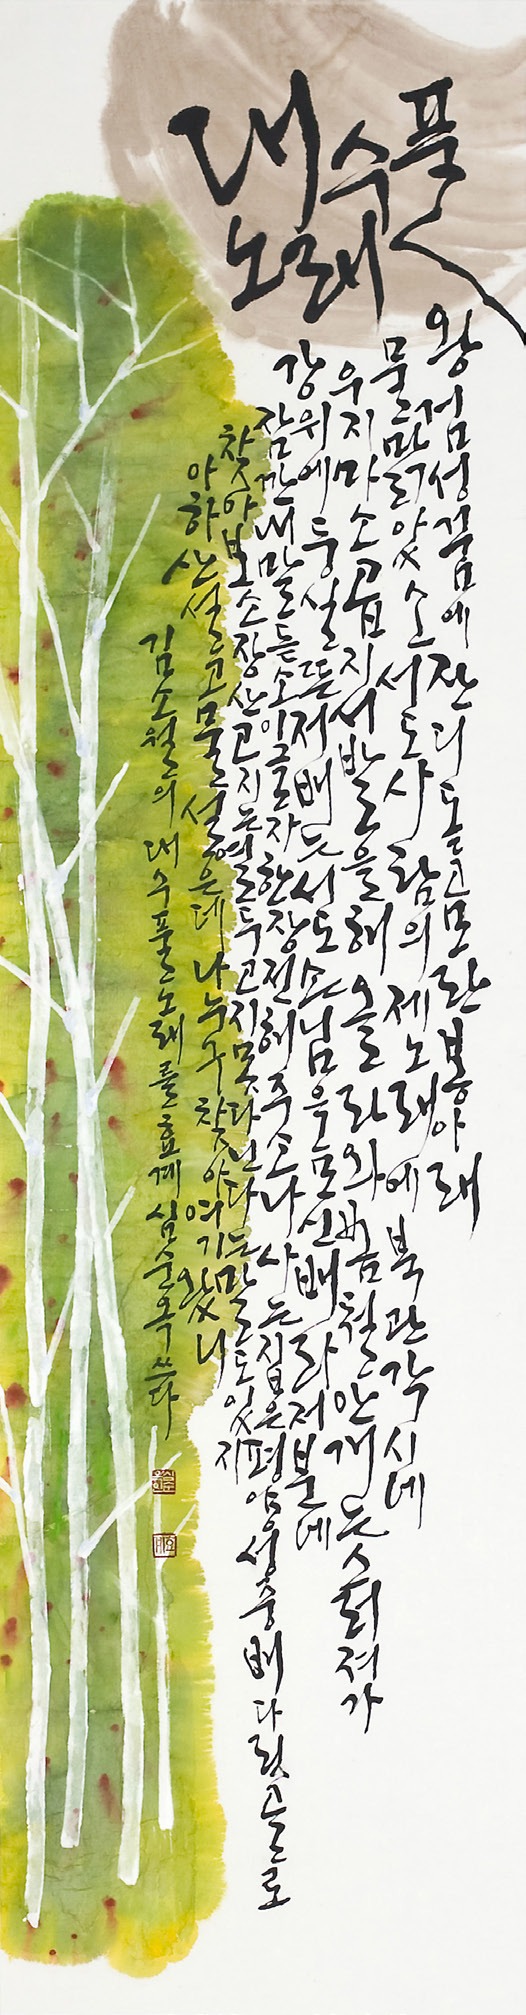 대수풀
노래
왕검성 꿈에 잔디 돋고 모란봉 아래
물 맑았소 서도 사람의 제 노래에 북관 각시네
우지 마소 곱지 서 발을 해 올라와 봄철 안개는 스러져 가
강 위에 둥실 뜬 저 배는 서도 손님을 모신 배라 저분네
잠깐 내 말 듣소 이 글자 한 장 전해 주소 나 사는 집은 평양성중 배다릿골로
찾아보소 장산고지는 열두 고지 못 다닌다는 말도 있지
아하 산 설고 물 설은데 나 누구 찾아 여기 왔니
김소월의 대수풀노래를 효계 심순옥 쓰다